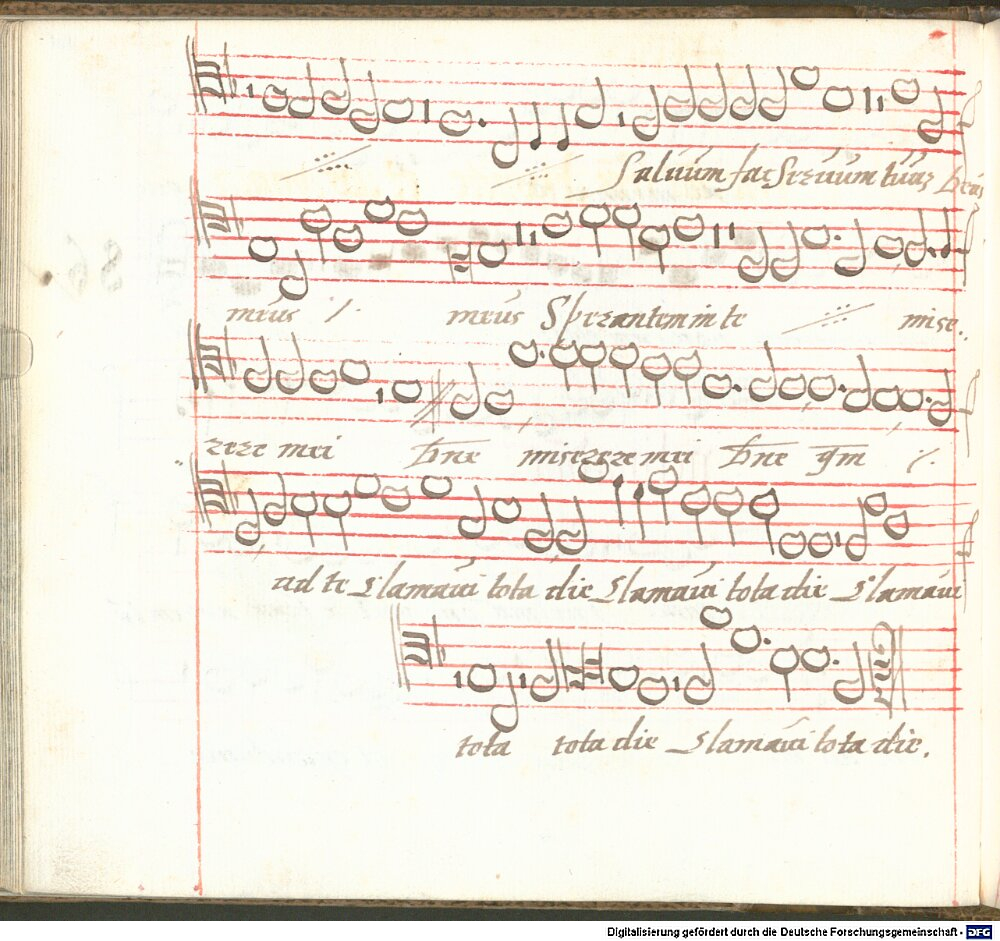 Saluum fac Seruum tuũ Deus
meus ·/· meus Sperantem in te mise..
rere mei Dne miserere mei Dne qm ·/·
ad te Clamaui tota die Clamaui tota die Clamaui
tota tota die Clamaui tota die.
Digitalisierung gefördert durch die Deutsche Forschungsgemeinschaft - DFG